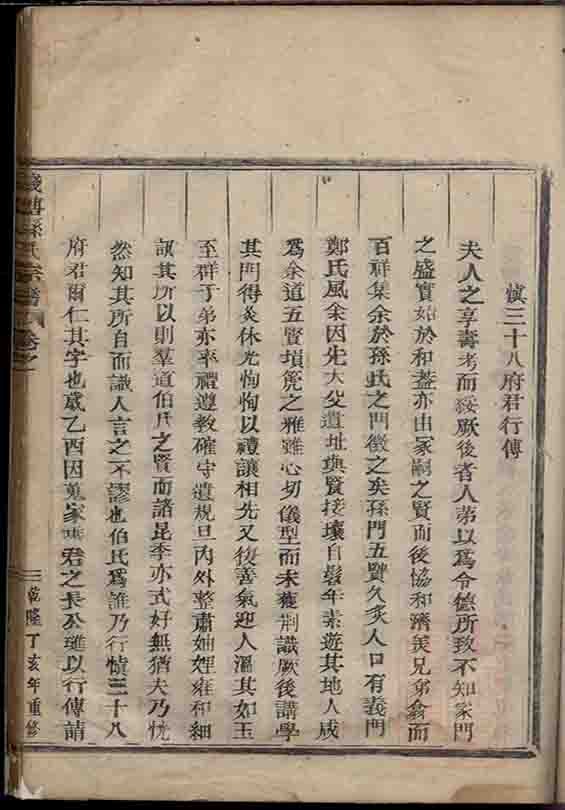 慎三十八府君行傳
夫人之享壽考而綏厥後者人苐以爲令德所致不知家門
之盛實始於和蓋亦由冢嗣之賢而後協和濟美兄弟翕而
百祥集余於孫氏之門徵之矣孫門五賢久炙人口有義門
鄭氏風余因先大父遺址與賢接壤自髫年素遊其地人咸
爲余道五賢塤箎之雅雖心切儀型而未獲荆識厥後講學
其門得炙休光恂恂以禮讓相先又復善氣迎人溫其如玉
至群子弟亦率禮遵教確守遺規且內外整肅妯娌雍和細
訊其所以則羣道伯氏之賢而諸昆季亦式好無猶夫乃恍
然知其所自而識人言之不謬也伯氏爲誰乃行慎三十八
府君爾仁其字也歲乙酉因蒐家乘君之長公 以行傳請
孫氏宗譜 卷之
乾隆丁亥年重修